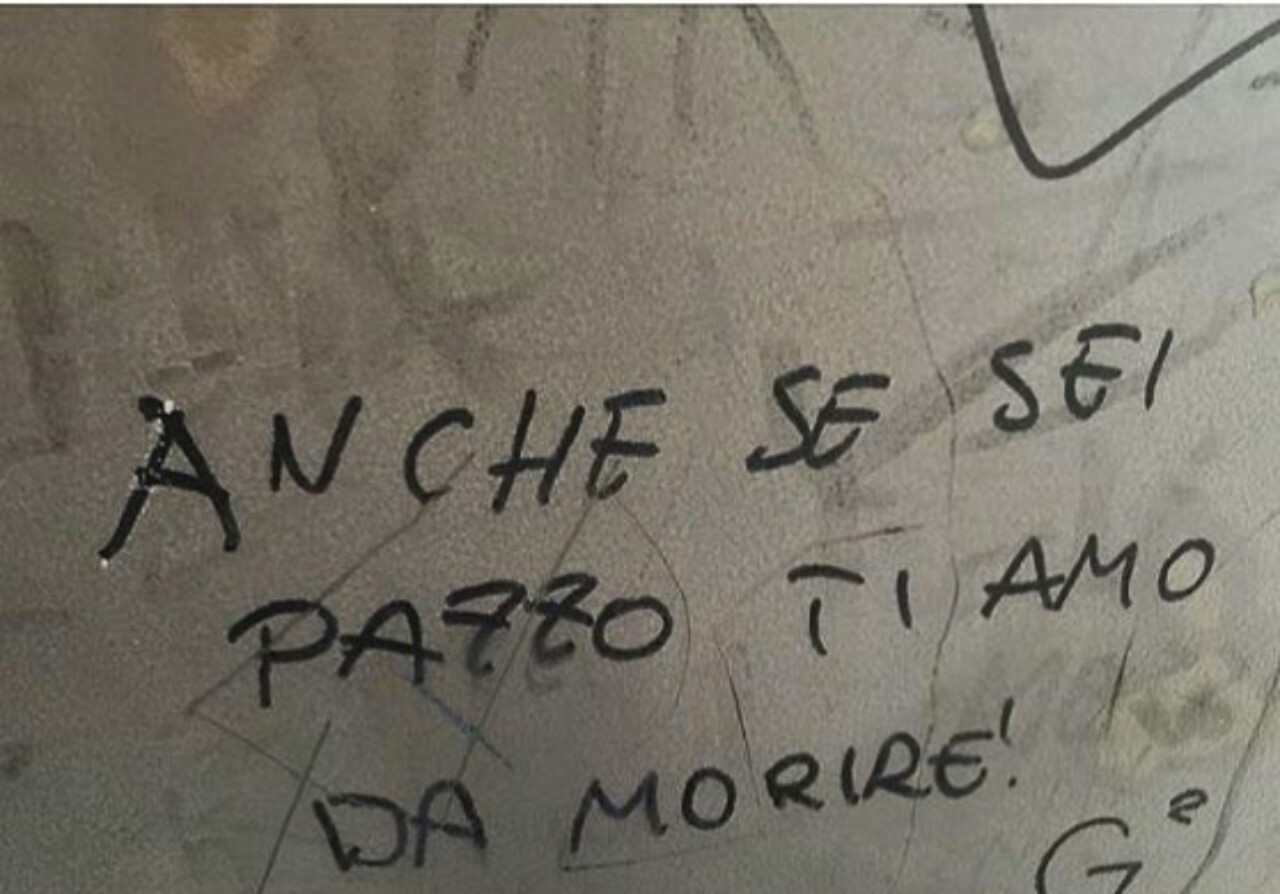 ANCHE SE SEI
PAZZO TI AMO
DA MORIRE!
G²